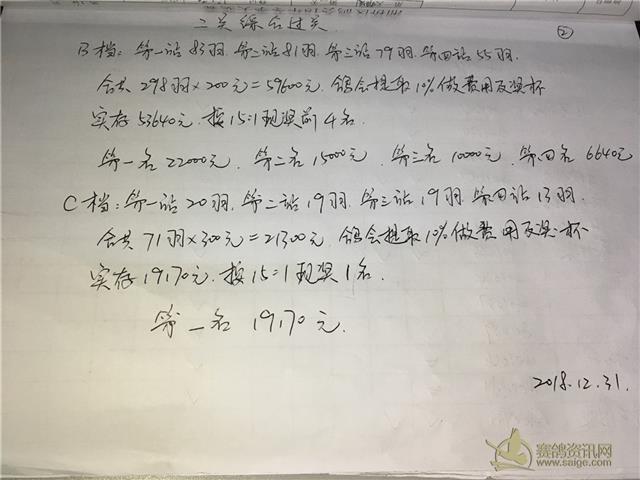 二关综合过关
②
B档：第一站83羽.第二站81羽.第三站79羽.第四站55羽.
合共298羽×200元=59600元.鸽会提取10%做费用及奖杯
实存53640元.按15:1现奖前4名.
第一名22000元.第二名15000元.第三名10000元.第四名6640元
C档：第一站20羽.第二站19羽.第三站19羽.第四站13羽.
合共71羽×300元=21300元.鸽会提取10%做费用及奖杯
实存19170元.按15:1现奖1名.
第一名 19170元.
2018.12.31.
赛鸽资讯网
www.saige.com